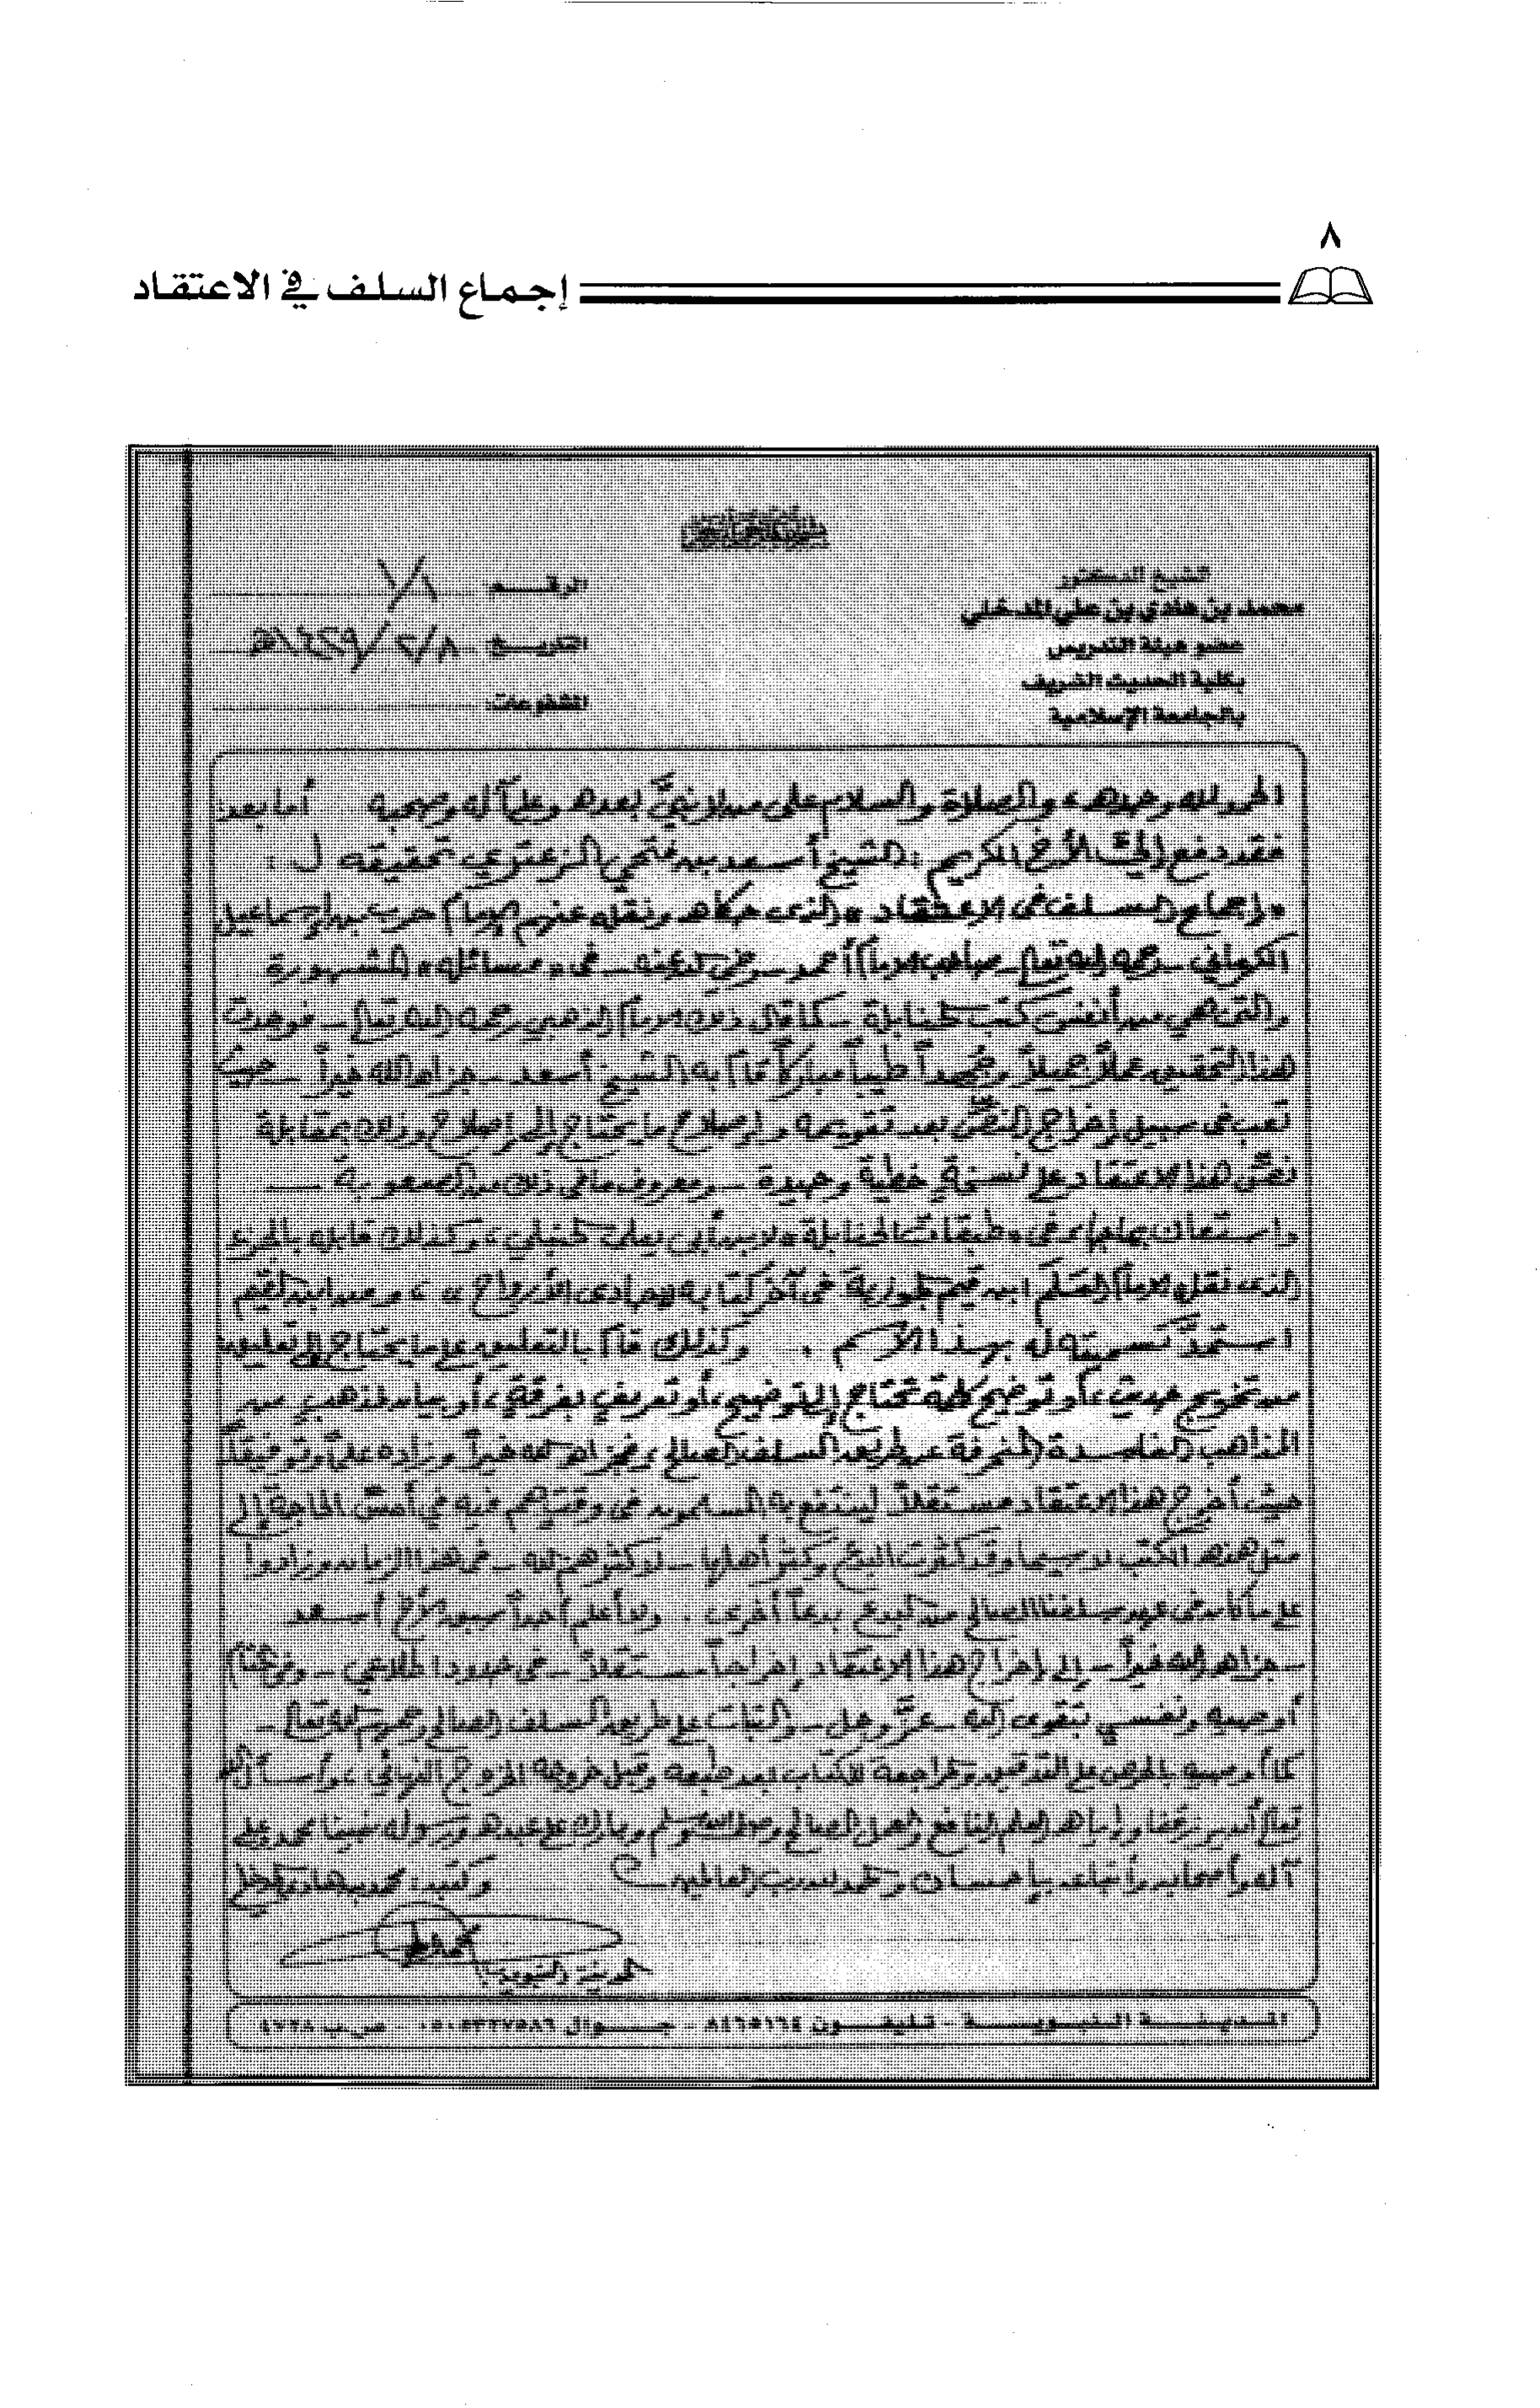 ٨
إجماع السلف في الاعتقاد
الشيخ الدكتور
محمد بن هادي بن علي المدخلي
عضو هيئة التدريس
بكلية الحديث الشريف
بالجامعة الإسلامية
الرقم:
التاريخ: ٢/٨/ ١٤٢٩هـ
المشفوعات:
الحمد لله وحده، والصلاة والسلام على من لا نبيَّ بعده وعلى آله وصحبه أما بعد:
فقد دفع إليَّ الأخ الكريم: الشيخ أسعد بن فتحي الزعتري تحقيقه لـ:
«إجماع السلف في الاعتقاد» الذي حكاه ونقله عنهم الإمام حرب بن إسماعيل
الكرماني - رحمه الله تعالى - صاحب الإمام أحمد - رضي الله عنه - في «مسائله» المشهورة
والتي هي من أنفس كتب الحنابلة - كما قال ذلك الإمام الذهبي رحمه الله تعالى - فوجدت
هذا التحقيق عملاً جميلاً وجهداً طيباً مباركاً قام به الشيخ أسعد - جزاه الله خيراً - حيث
تعب في سبيل إخراج النصّ بعد تقويمه وإصلاح ما يحتاج إلى إصلاح وذلك بمقابلة
نصّ هذا الاعتقاد على نسخة خطية وحيدة - ومعروف ما في ذلك من الصعوبة -
واستعان بما جاء في «طبقات الحنابلة» لابن أبي يعلى الحنبلي، وكذلك قابله بالجزء
الذي نقله الإمام ابن قيم الجوزية في آخر كتابه «حادي الأرواح»، ومن ابن القيم
استمدّ تسميته له بهذا الاسم. وكذلك قام بالتعليق على ما يحتاج إلى تعليق
من تخريج حديث، أو توضيح كلمة تحتاج إلى توضيح، أو تعريف بفرقة، أو بيان لمذهب من
المذاهب الفاسدة المنحرفة عن طريق السلف الصالح، فجزاه الله خيراً وزاده علماً وتوفيقاً
حيث أخرج هذا الاعتقاد مستقلاً لينتفع به المسلمون في وقت هم فيه في أمسّ الحاجة إلى
مثل هذه الكتب لا سيما وقد كثرت البدع وكثر أهلها - لا كثرهم الله - في هذا الزمان وزادوا
على ما كان في عهد سلفنا الصالح من البدع بدعاً أخرى. ولا أعلم أحداً سبق الأخ أسعد
- جزاه الله خيراً - إلى إخراج هذا الاعتقاد إخراجاً مستقلاً - في حدود اطلاعي - وفي الختام
أوصيه ونفسي بتقوى الله - عزَّ وجل - والثبات على طريق السلف الصالح رحمهم الله تعالى -
كما أوصيه بالحرص على التدقيق والمراجعة للكتاب بعد طبعه وقبل خروجه الخروج النهائي، وأسأل الله
تعالى أن يرزقنا وإياه العلم النافع والعمل الصالح وصلى الله وسلم وبارك على عبده ورسوله نبينا محمد وعلى
آله وأصحابه وأتباعه بإحسان والحمد لله رب العالمين وكتبه: محمد بن هادي المدخلي
المدينة النبوية
المدينة النبوية - تليفون ٨٤٦٥١٦٤ - جوال - ص.ب